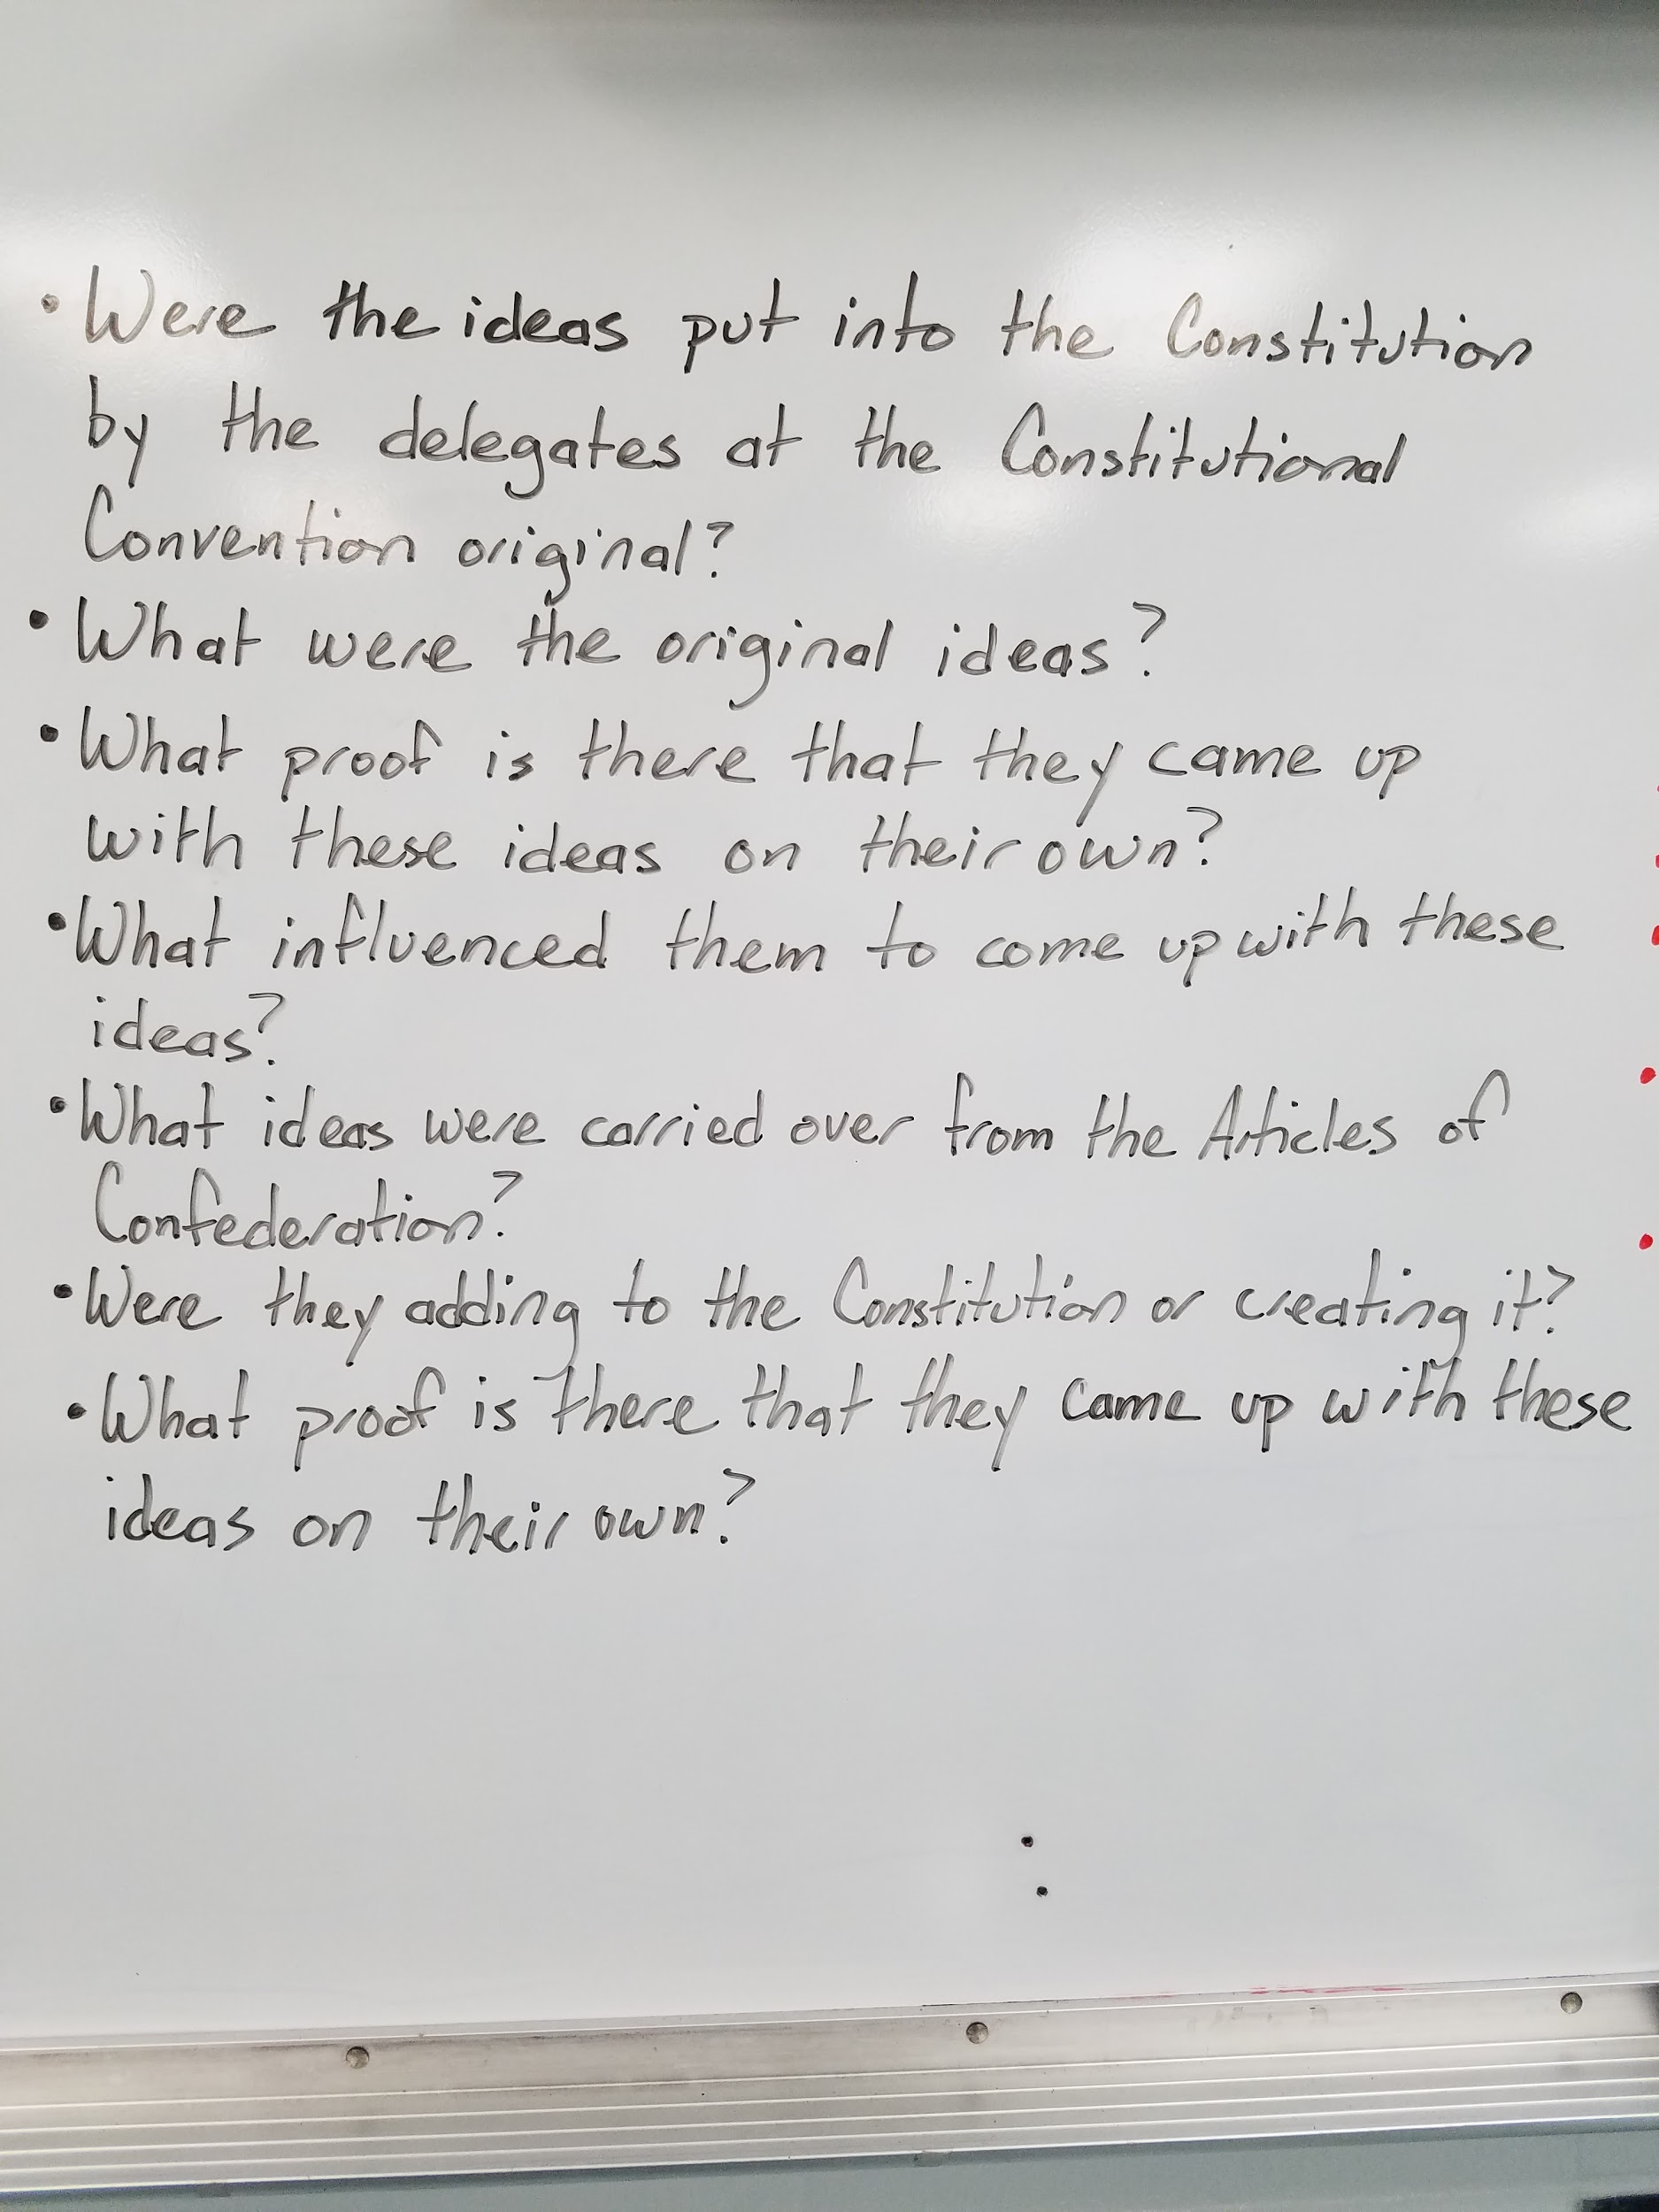 • Were the ideas put into the Constitution
by the delegates at the Constitutional
Convention original?
• What were the original ideas?
• What proof is there that they came up
with these ideas on their own?
• What influenced them to come up with these
ideas?
• What ideas were carried over from the Articles of
Confederation?
• Were they adding to the Constitution or creating it?
• What proof is there that they came up with these
ideas on their own?